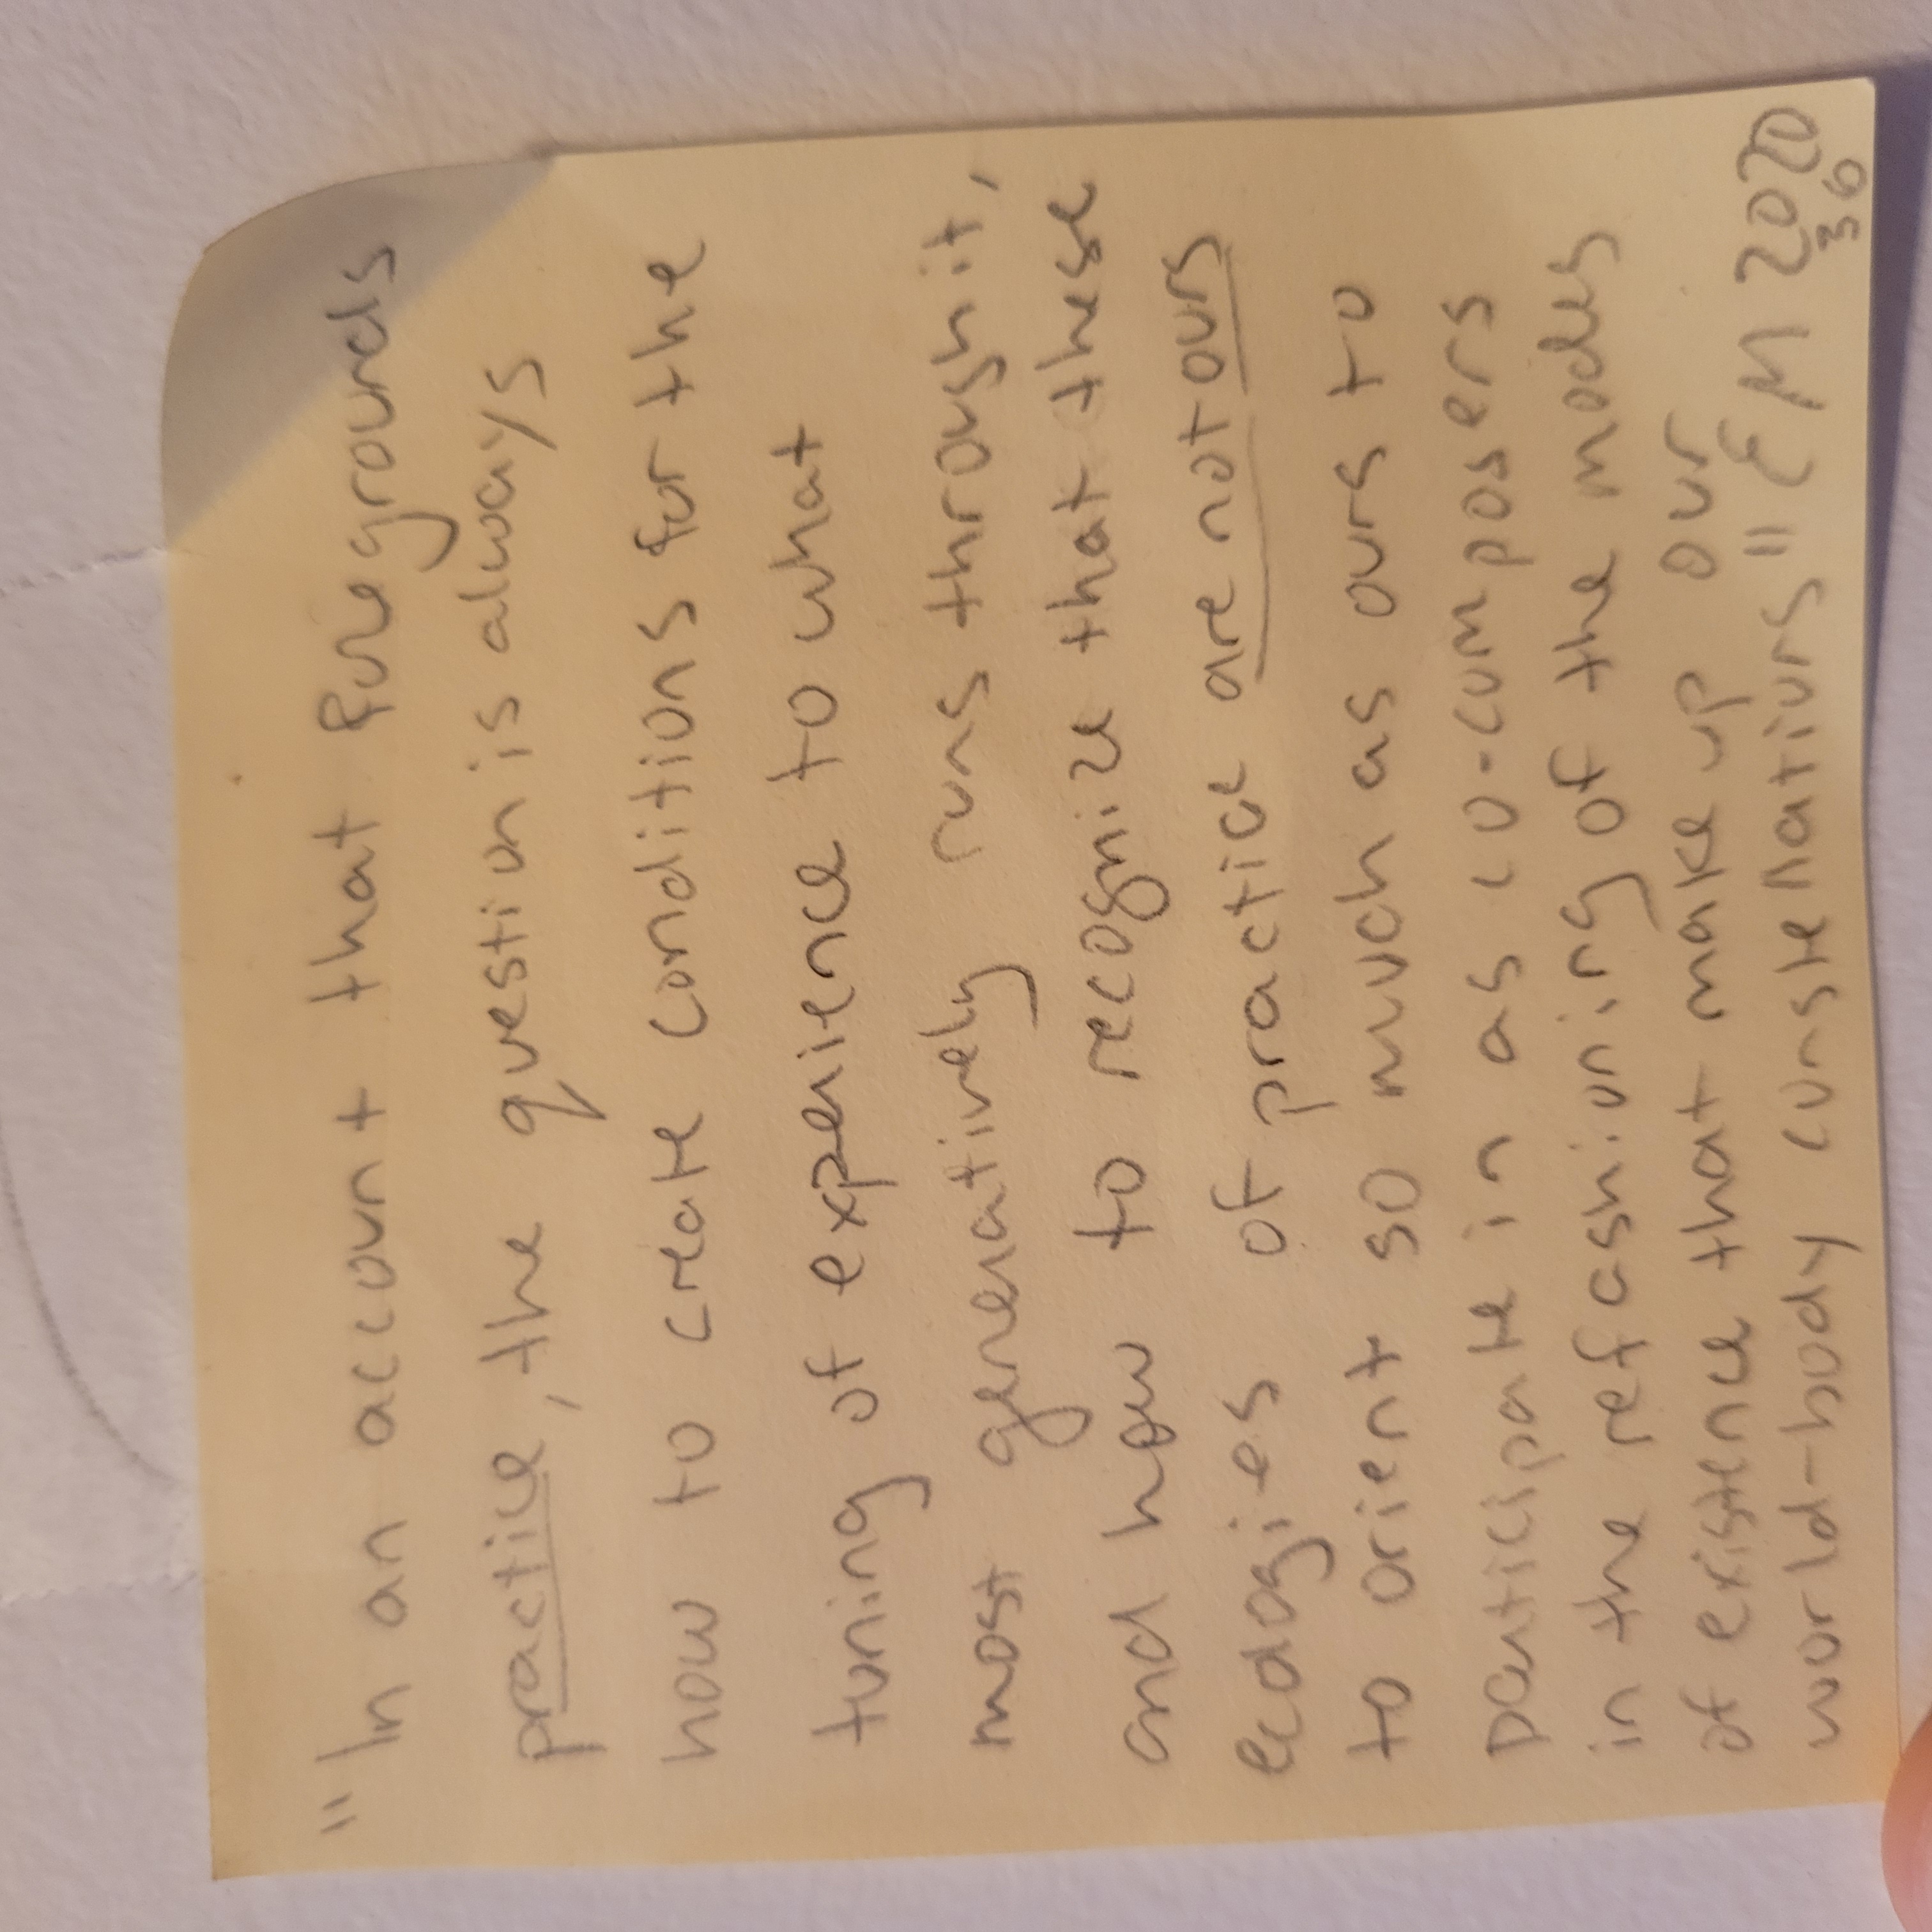 "In an account that foregrounds
practice, the question is always
how to create conditions for the
tuning of experience to what
most generatively runs through it,
and how to recognize that these
ecologies of practice are not ours
to orient so much as ours to
participate in as co-composers
in the refashioning of the modes
of existence that make up our
world-body constellations" EM 2020
36